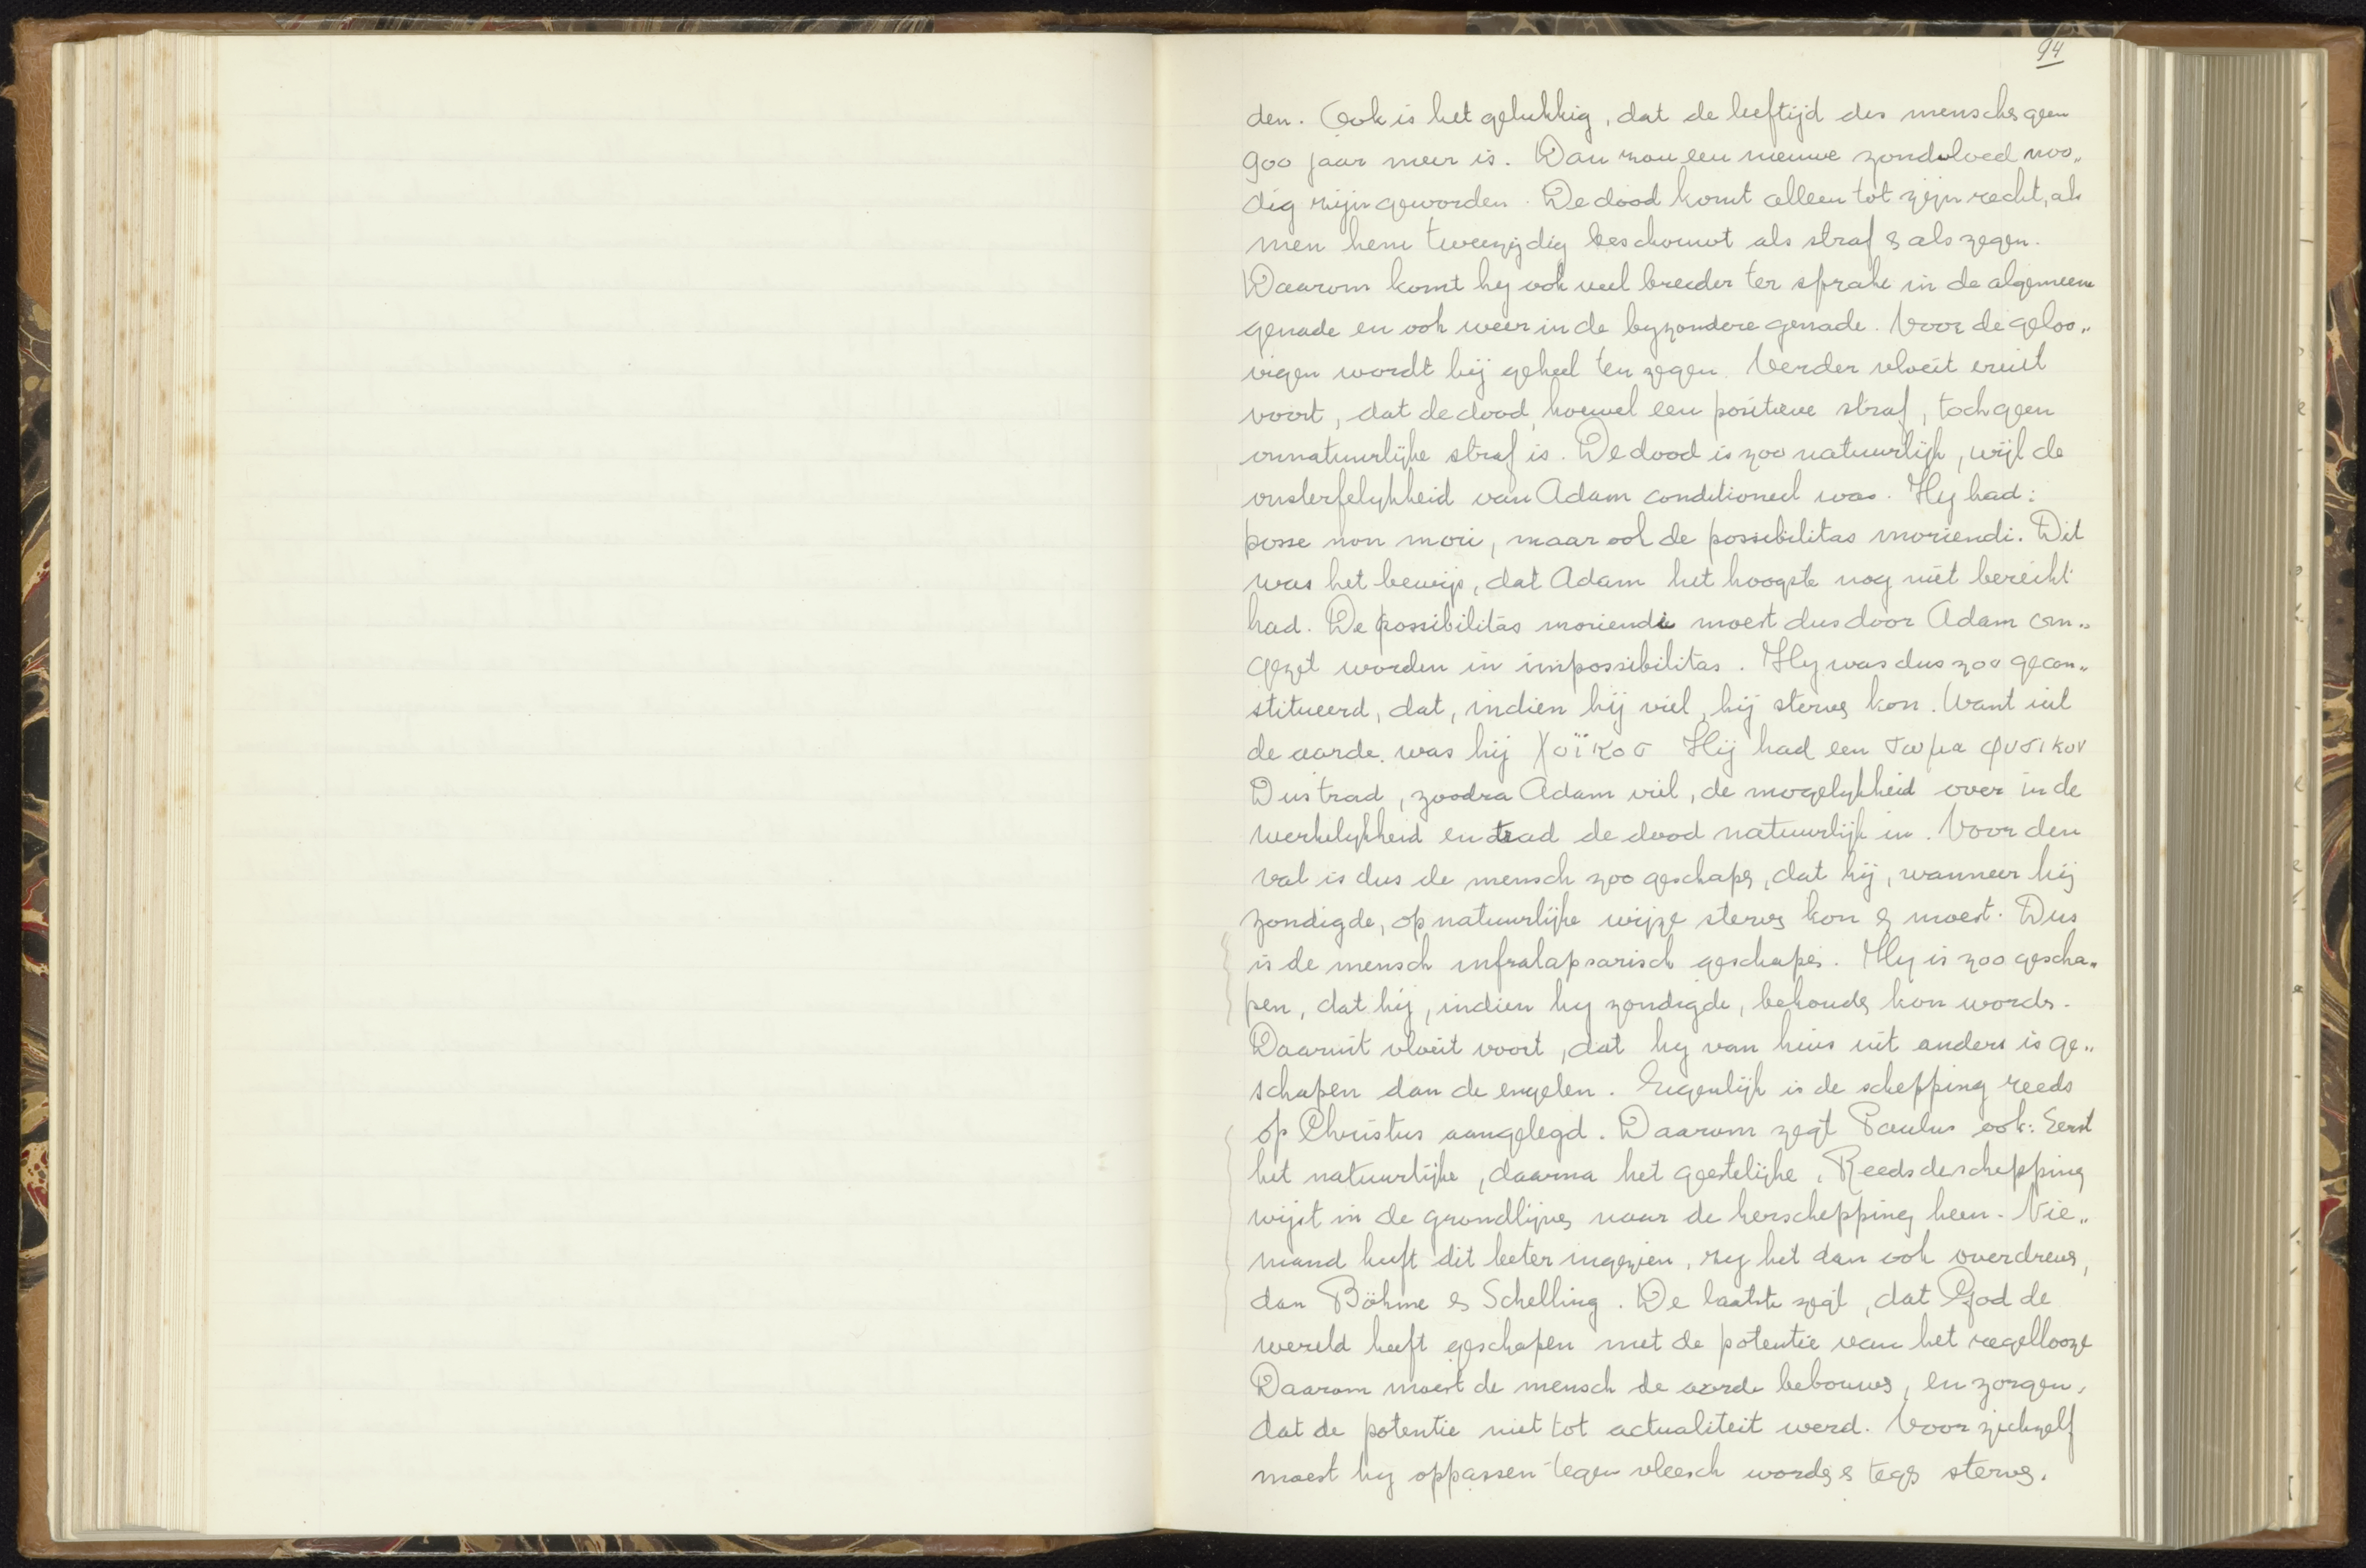 94
den. Ook is het gelukkig, dat de leeftijd des mensch&s geen
900 jaar meer is. Dan zou een nieuwe zondvloed noo„
dig zijn geworden. De dood komt alleen tot zijn recht, als
men hem tweezijdig beschouwt als straf & als zegen.
Daarom komt hy ook veel breeder ter sprake in de algemeene
genade en ook weer in de byzondere genade. Voor de geloo„
vigen wordt hij geheel ten zegen. Verder vloeit eruit
voort, dat de dood, hoewel een positieve straf, toch geen
onnatuurlijke straf is. De dood is zoo natuurlijk, wijl de
onsterfelykheid van Adam conditioneel was. Hy had:
posse non mori, maar ook de possibilitas moriendi. Dit
was het bewijs, dat Adam het hoogste nog niet bereikt
had. De possibilitas moriendi moest dus door Adam om„
gezet worden in impossibilitas. Hy was dus zoo gecon„
stitueerd, dat, indien hij viel, hij sterv& kon. Want uit
de aarde. was hij χοϊκοσ Hij had een σωμα φυσικον
Dus trad, zoodra Adam viel, de mogelykheid over in de
werkelykheid en trad de dood natuurlijk in. Voor den
val is dus de mensch zoo geschap&, dat hij, wanneer hij
zondigde, op natuurlijke wijze sterv& kon & moest. Dus
is de mensch infralapsarisch geschap&. Hy is zoo gescha„
pen, dat hij, indien hy zondigde, behoud& kon word&.
Daaruit vloeit voort, dat hy van huis uit anders is ge„
schapen dan de engelen. Eigenlijk is de schepping reeds
op Christus aangelegd. Daarom zegt Paulus ook: Eerst
het natuurlijke, daarna het geestelijke. Reeds de schepping
wijst in de grondlijn& naar de herschepping heen. Nie„
mand heeft dit beter ingezien, zy het dan ook overdrev&,
dan Böhme & Schelling. De laatste zegt, dat God de
wereld heeft geschapen met de potentie van het regellooze
Daarom moest de mensch de aarde bebouw&, en zorgen,
dat de potentie niet tot actualiteit werd. Voor zichzelf
moest hy oppassen tegen vleesch word& & teg& sterv&.